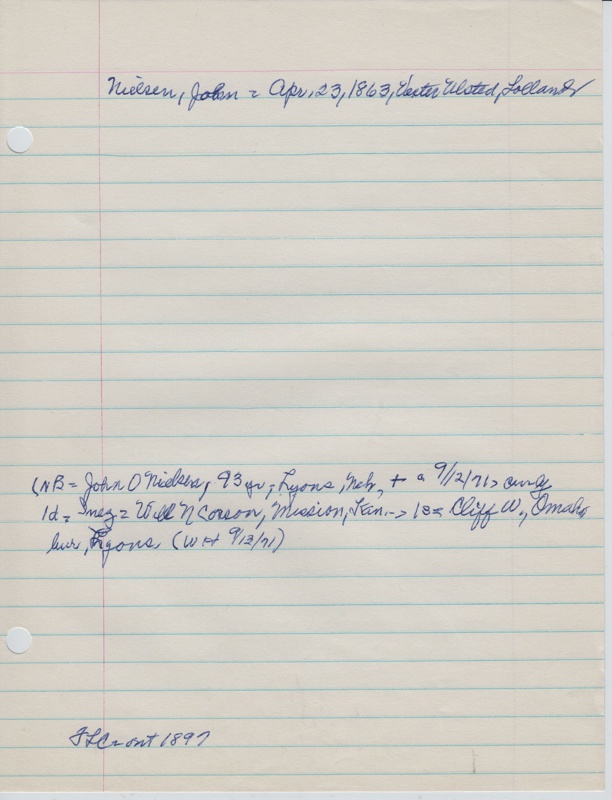 Nielsen, John = Apr. 23, 1863, Vester Ulsted, Lolland
(NB = John O Nielsen, 93 yr, Lyons, Neb, + a 9/12/71>
1d = Inez = Will N Corson, Mission, Kan. -> 1s = Cliff W., Omaha
bur, Lyons. (WH 9/13/71)
1897